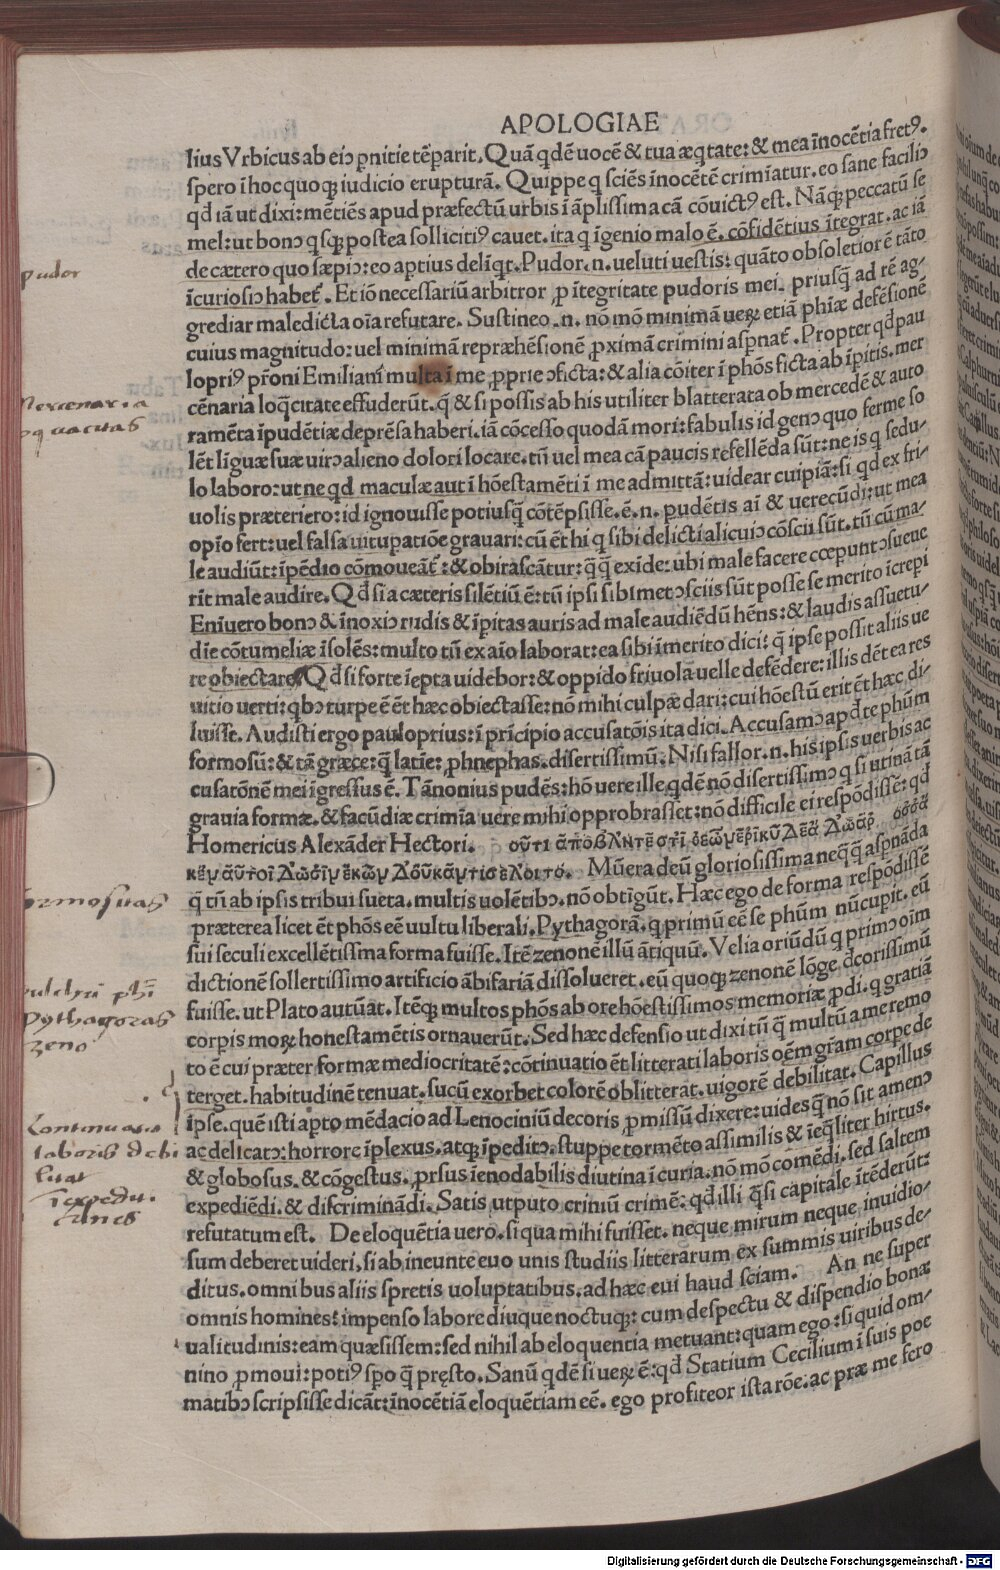 APOLOGIAE
lius Vrbicus ab eiꝰ ꝑnitie tēparit. Quā qdē uocē & tua æqtate: & mea īnocētia fretꝰ.
spero ī hoc quoqꝫ iudicio erupturā. Quippe q sciēs īnocētē crimīatur. eo sane faciliꝰ
qđ iā ut dixi: mētiēs apud præfectū urbis ī āplissima cā cōuictꝰ est. Nāqꝫ peccatū se
mel: ut bonꝰ qsqꝫ postea sollicitiꝰ cauet. ita q īgenio malo ē. cōfidētius ītegrat. ac iā
de cætero quo sæpiꝰ: eo aptius delīqt. Pudor .n. ueluti uestis: quāto obsoletior ē tāto
pudor
īcuriosiꝰ habet̄. Et iō necessariū arbitror ꝓ ītegritate pudoris mei. priusq̄ ad rē ag-
grediar maledicta oīa refutare. Sustineo .n. nō mō minimā ueꝝ etiā phīæ defēsionē
cuius magnitudo: uel minimā repræhēsionē ꝓximā crimini aspnat̄. Propter qđ pau
lopriꝰ pr̄oni Emilianī multa ī me ꝓprie ꝯficta: & alia cōiter ī phōs ficta ab īpitis. mer
Mercenaria
loquacitas
cēnaria loq̄citate effuderūt. q̄ & si possis ab his utiliter blatterata ob mercedē & auto
ramēta īpudētiæ depr̄esa haberi. iā cōcesso quodā mori: fabulis id genꝰ quo ferme so
lēt līguæ suæ uirꝰ alieno dolori locare. tū uel mea cā paucis refellēda sūt: ne is q sedu-
lo laboro: ut ne qd maculæ aut ī hōestamēti ī me admittā: uidear cuipiā: si qd ex fri-
uolis præteriero: id ignouisse potiusq̄ cōtēpsisse. ē .n. pudētis aī & uerecūdi: ut mea
opīo fert: uel falsa uitupatiōe grauari: cū ēt hi q sibi delicti alicuiꝰ cōscii sūt. tū cū ma-
le audiūt: īpēdio cōmoueāt̄: & obirascātur: q̄q̄ exide: ubi male facere cœpunt ꝯsueue
rīt male audire. Qđ si a cæteris silētiū ē: tū ipsi sibimet ꝯsciis sūt posse se merito īcrepi
Enīuero bonꝰ & īnoxiꝰ rudis & īpitas auris ad male audiēdū hēns: & laudis assuetu-
dīe cōtumeliæ īsolēs: multo tū ex aīo laborat: ea sibi īmerito dici: q̄ ipse possit aliis ue
re obiectare. Qđ si forte īepta uidebor: & oppido friuola uelle defēdere: illis dēt ea res
uitio uerti: qbꝰ turpe ē ēt hæc obiectasse: nō mihi culpæ dari: cui hōestū erit ēt hæc di-
luisse. Audisti ergo pauloprius: ī prīcipio accusatōis ita dici. Accusamꝰ apđ te phūm
formosū: & tā græce: q̄ latīe: ꝓhnephas. disertissimū. Nisi fallor .n. his ipsis uerbis ac
cusatōnē mei īgressus ē. Tānonius pudēs: hō uere ille qdē nō disertissimꝰ q si utinā tā
grauia formæ. & facūdiæ crimīa uere mihi opprobrasset: nō difficile ei respōdisse: qđ
Homericus Alexāder Hectori.
Mūera deū gloriosissima neq̄q̄ aspnāda
q̄ tū ab ipsis tribui sueta. multis uolētibꝰ. nō obtīgūt. Hæc ego de forma respōdissē
formositas
præterea licet ēt phōs eē uultu liberali. Pythagorā. q primū eē se phūm nūcupit. eū
sui seculi excellētissima forma fuisse. Itē zenonē illū ātiquū. Velia oriūdū q primꝰ oīm
dictionē sollertissimo artificio ābifariā dissolueret. eū quoqꝫ zenonē lōge dcorissimū
pulchri phī
pythagoras
zeno
fuisse. ut Plato autūat. Itēqꝫ multos phōs ab ore hōestissimos memoriæ ꝓdi. q gratiā
corpis moꝝ honestamētis ornauerūt. Sed hæc defensio ut dixi tū q̄ multū a me remo
to ē cui præter formæ mediocritatē: cōtinuatio ēt litterati laboris oēm gr̄am corpe de
terget. habitudinē tenuat. sucū exorbet colorē oblitterat. uigorē debilitat. Capillus
ipse. quē isti apto mēdacio ad Lenociniū decoris ꝓmissū dixere: uides q̄ nō sit amenꝰ
Continuatio
laboris debi
litat
ac delicatꝰ: horrore īplexus. atqꝫ īpeditꝰ. stuppe tormēto assimilis & īeq̄liter hirtus.
& globosus. & cōgestus. ꝓrsus īenodabilis diutina īcuria. nō mō comēdi. sed saltem
expediēdi. & discriminādi. Satis ut puto criniū crimē: qđ illi q̄si capitale ītēderūt:
refutatum est. De eloquētia uero. si qua mihi fuisset. neque mirum neque inuidio-
sum deberet uideri, si ab ineunte euo unis studiis litterarum ex summis uiribus de-
ditus. omnibus aliis spretis uoluptatibus. ad hæc eui haud sciam. An ne super
omnis homines: impenso labore diuque noctuqꝫ: cum despectu & dispendio bonæ
ualitudinis: eam quæsissem: sed nihil ab eloquentia metuant: quam ego: si quid om-
nino ꝓmoui: potiꝰ spo q̄ pręsto. Sanū qdē si ueꝝ ē: qđ Statium Cecilium ī suis poe
matibꝰ scripsisse dicāt: īnocētiā eloquētiam eē. ego profiteor ista rōe: ac præ me fero
Digitalisierung gefördert durch die Deutsche Forschungsgemeinschaft - DFG